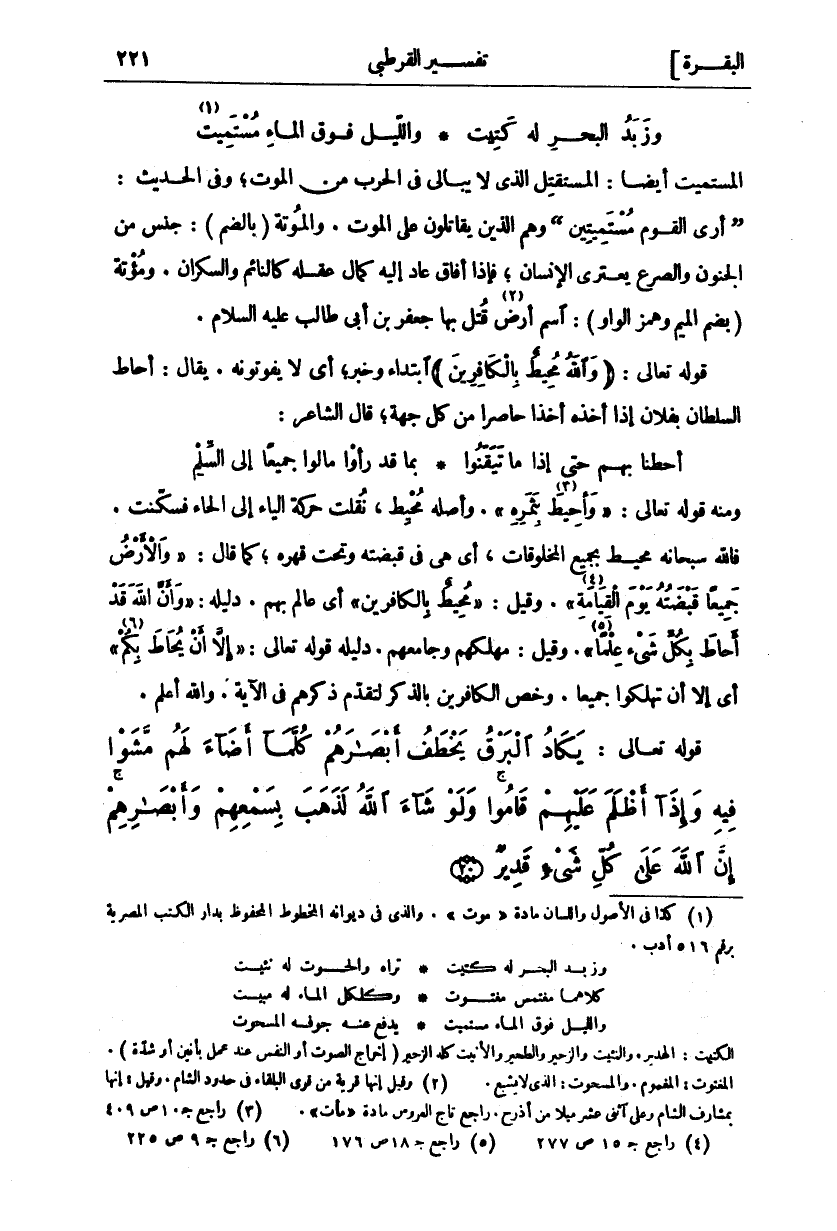 البقـــرة ]
تفســـير القرطبى
٢٢١
وزَبَدُ البحــرِ له كَتِيت * واللّيــل فــوق المــاءِ مُسْتَمِيت (١)
المستميت أيضــا : المستقتِل الذى لا يبـالى فى الحرب مـن الموت؛ وفى الحــديث :
” أرى القــوم مُسْتَمِيتِين “ وهم الذين يقاتلون على الموت . والمُوتة ( بالضم ) : جنس من
الجنون والصرع يعـترى الإنسان ؛ فإذا أفاق عاد إليه كمال عقـله كالنائم والسكران . ومُؤْتة
( بضم الميم وهمز الواو ) : آسم أرض (٢) قُتل بها جعفر بن أبى طالب عليه السلام .
قوله تعالى : ﴿ وَٱللَّهُ مُحِيطٌ بِالْكَافِرِينَ ﴾ آبتداء وخبر؛ أى لا يفوتونه . يقال : أحاط
السلطان بفلان إذا أخذه أخذا حاصرا من كل جهة؛ قال الشاعر :
أحطنا بهــم حتى إذا ما تَيَقّنُوا * بما قد رأوْا مالوا جميعًا إلى السِّلْمِ
ومنه قوله تعالى : « وَأُحِيطَ بِثَمَرِهِ (٣) » . وأصله مُحْيِط ، نُقلت حركة الياء إلى الحاء فسكّنت .
فالله سبحانه محيـط بجميع المخلوقات ، أى هى فى قبضته وتحت قهره ؛ كما قال : « وَالْأَرْضُ
جَمِيعًا قَبْضَتُهُ يَوْمَ الْقِيَامَةِ (٤) » . وقيل : «مُحِيطٌ بِالكافرين» أى عالم بهم . دليله : «وَأَنَّ اللهَ قَدْ
أَحَاطَ بِكُلِّ شَىْءٍ عِلْمًا (٥) » . وقيل : مهلكهم وجامعهم . دليله قوله تعالى : « إِلَّا أَنْ يُحَاطَ بِكُمْ (٦) »
أى إلا أن تهلكوا جميعا . وخص الكافرين بالذكر لتقدّم ذكرهم فى الآية . والله أعلم .
قوله تعـالى : يَكَادُ ٱلْبَرْقُ يَخْطَفُ أَبْصَـٰرَهُمْ كُلَّمَآ أَضَآءَ لَهُم مَّشَوْا۟
فِيهِ وَإِذَآ أَظْلَمَ عَلَيْهِـمْ قَامُوا۟ ۚ وَلَوْ شَآءَ ٱللَّهُ لَذَهَبَ بِسَمْعِهِمْ وَأَبْصَـٰرِهِمْ ۚ
إِنَّ ٱللَّهَ عَلَىٰ كُلِّ شَىْءٍ قَدِيرٌ ﴿٢٠﴾
(١) كذا فى الأصول واللسان مادة « موت » . والذى فى ديوانه المخطوط المحفوظ بدار الكتب المصرية
برقم ٥١٦ أدب .
وزبـد البحـر له كـتيت * تراه والحـــوت له نئيــت
كلاهمـا مغتمس مغتــوت * وكلكل المـاء له مبيـت
والليــل فوق المـاء مستميت * يدفع عنــه جوفــه المسحوت
الكتيت : الهدير. والنئيت والزحير والطحير والأنيت كله الزحير ( إخراج الصوت أو النفس عند عمل بأنين أو شدّة ) .
المغتوت : المغموم . والمسحوت : الذى لا يشبع . (٢) وقيل إنها قرية من قرى البلقاء فى حدود الشام . وقيل : إنها
بمشارف الشام وعلى آثنى عشر ميلا من أذرح . راجع تاج العروس مادة «مأت» . (٣) راجع ج ١٠ ص ٤٠٩
(٤) راجع ج ١٥ ص ٢٧٧ (٥) راجع ج ١٨ ص ١٧٦ (٦) راجع ج ٩ ص ٢٢٥